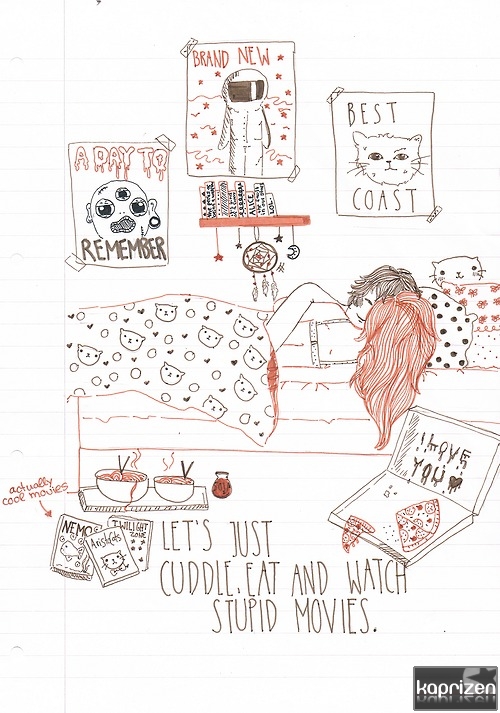 BRAND NEW
BEST
COAST
A DAY TO
REMEMBER
I LOVE
YOU
actually
cool movies
NEMO
Aristocats
TWILIGHT
ZONE
LET'S JUST
CUDDLE, EAT AND WATCH
STUPID MOVIES.
kaprizen